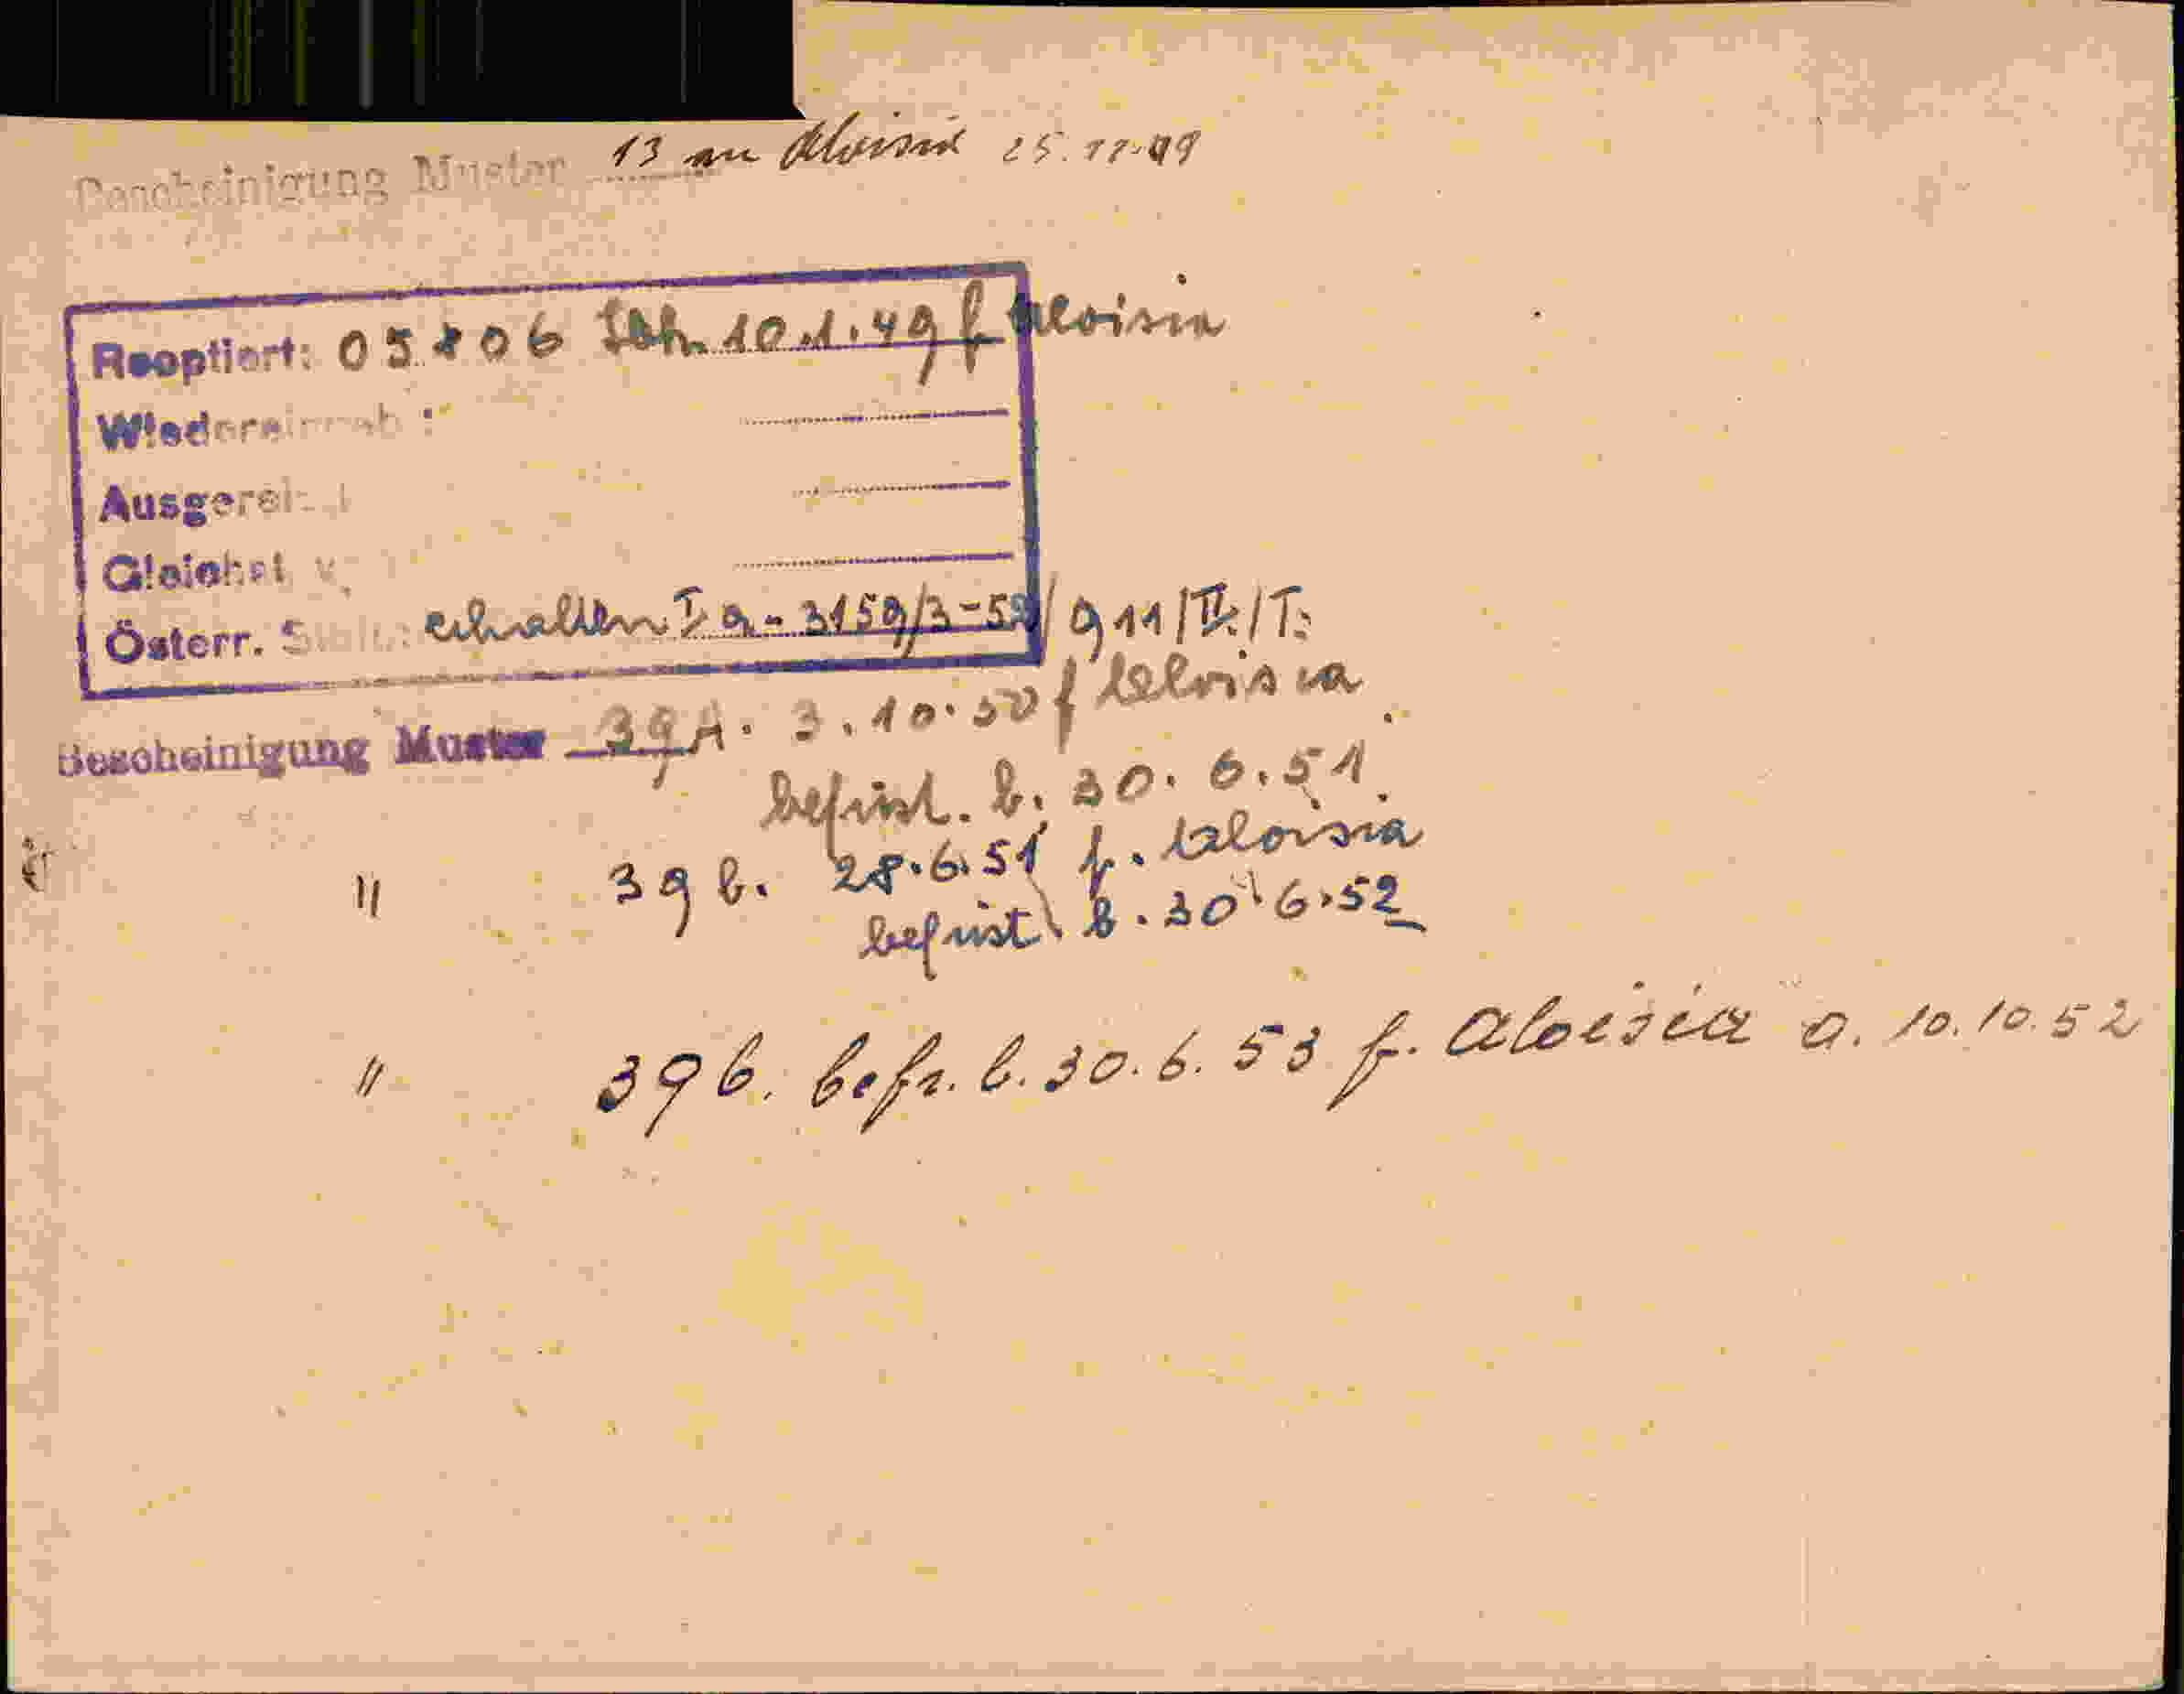 Bescheinigung Muster 13 an Aloisia 25.11.49
Reoptiert: 05806 10.1.49 f Aloisia
Ausgereist
Gleichst
Österr. Stb.: erhalten I a - 3159/3-52/911/II/I.
Bescheinigung Muster 39A. 3.10.50 f Aloisia
befrist. b. 30.6.51.
" 39 b. 28.6.51 f. Aloisia
befrist b. 30.6.52
" 39 b. befr. b. 30.6.53 f. Aloisia a. 10.10.52